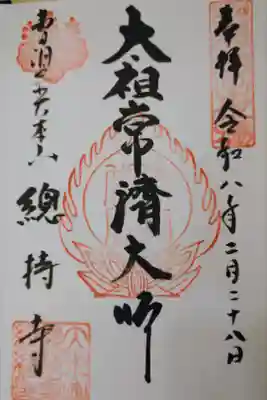 奉拝 令和八年二月二十八日
太祖常済大師
曹洞大本山 總持寺